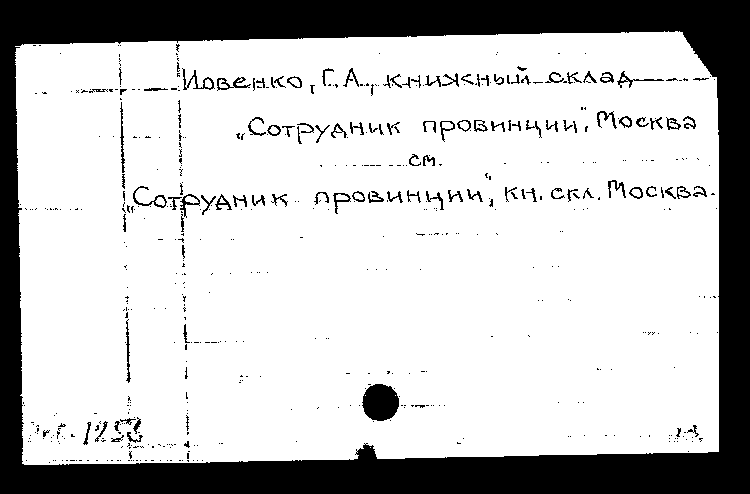 Иовенко, Г.А., книжный склад
„Сотрудник провинции", Москва
см.
„Сотрудник провинции", кн. скл. Москва.